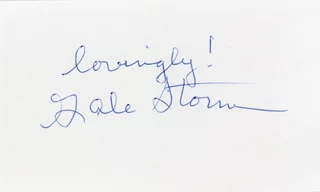 lovingly!
Gale Storm